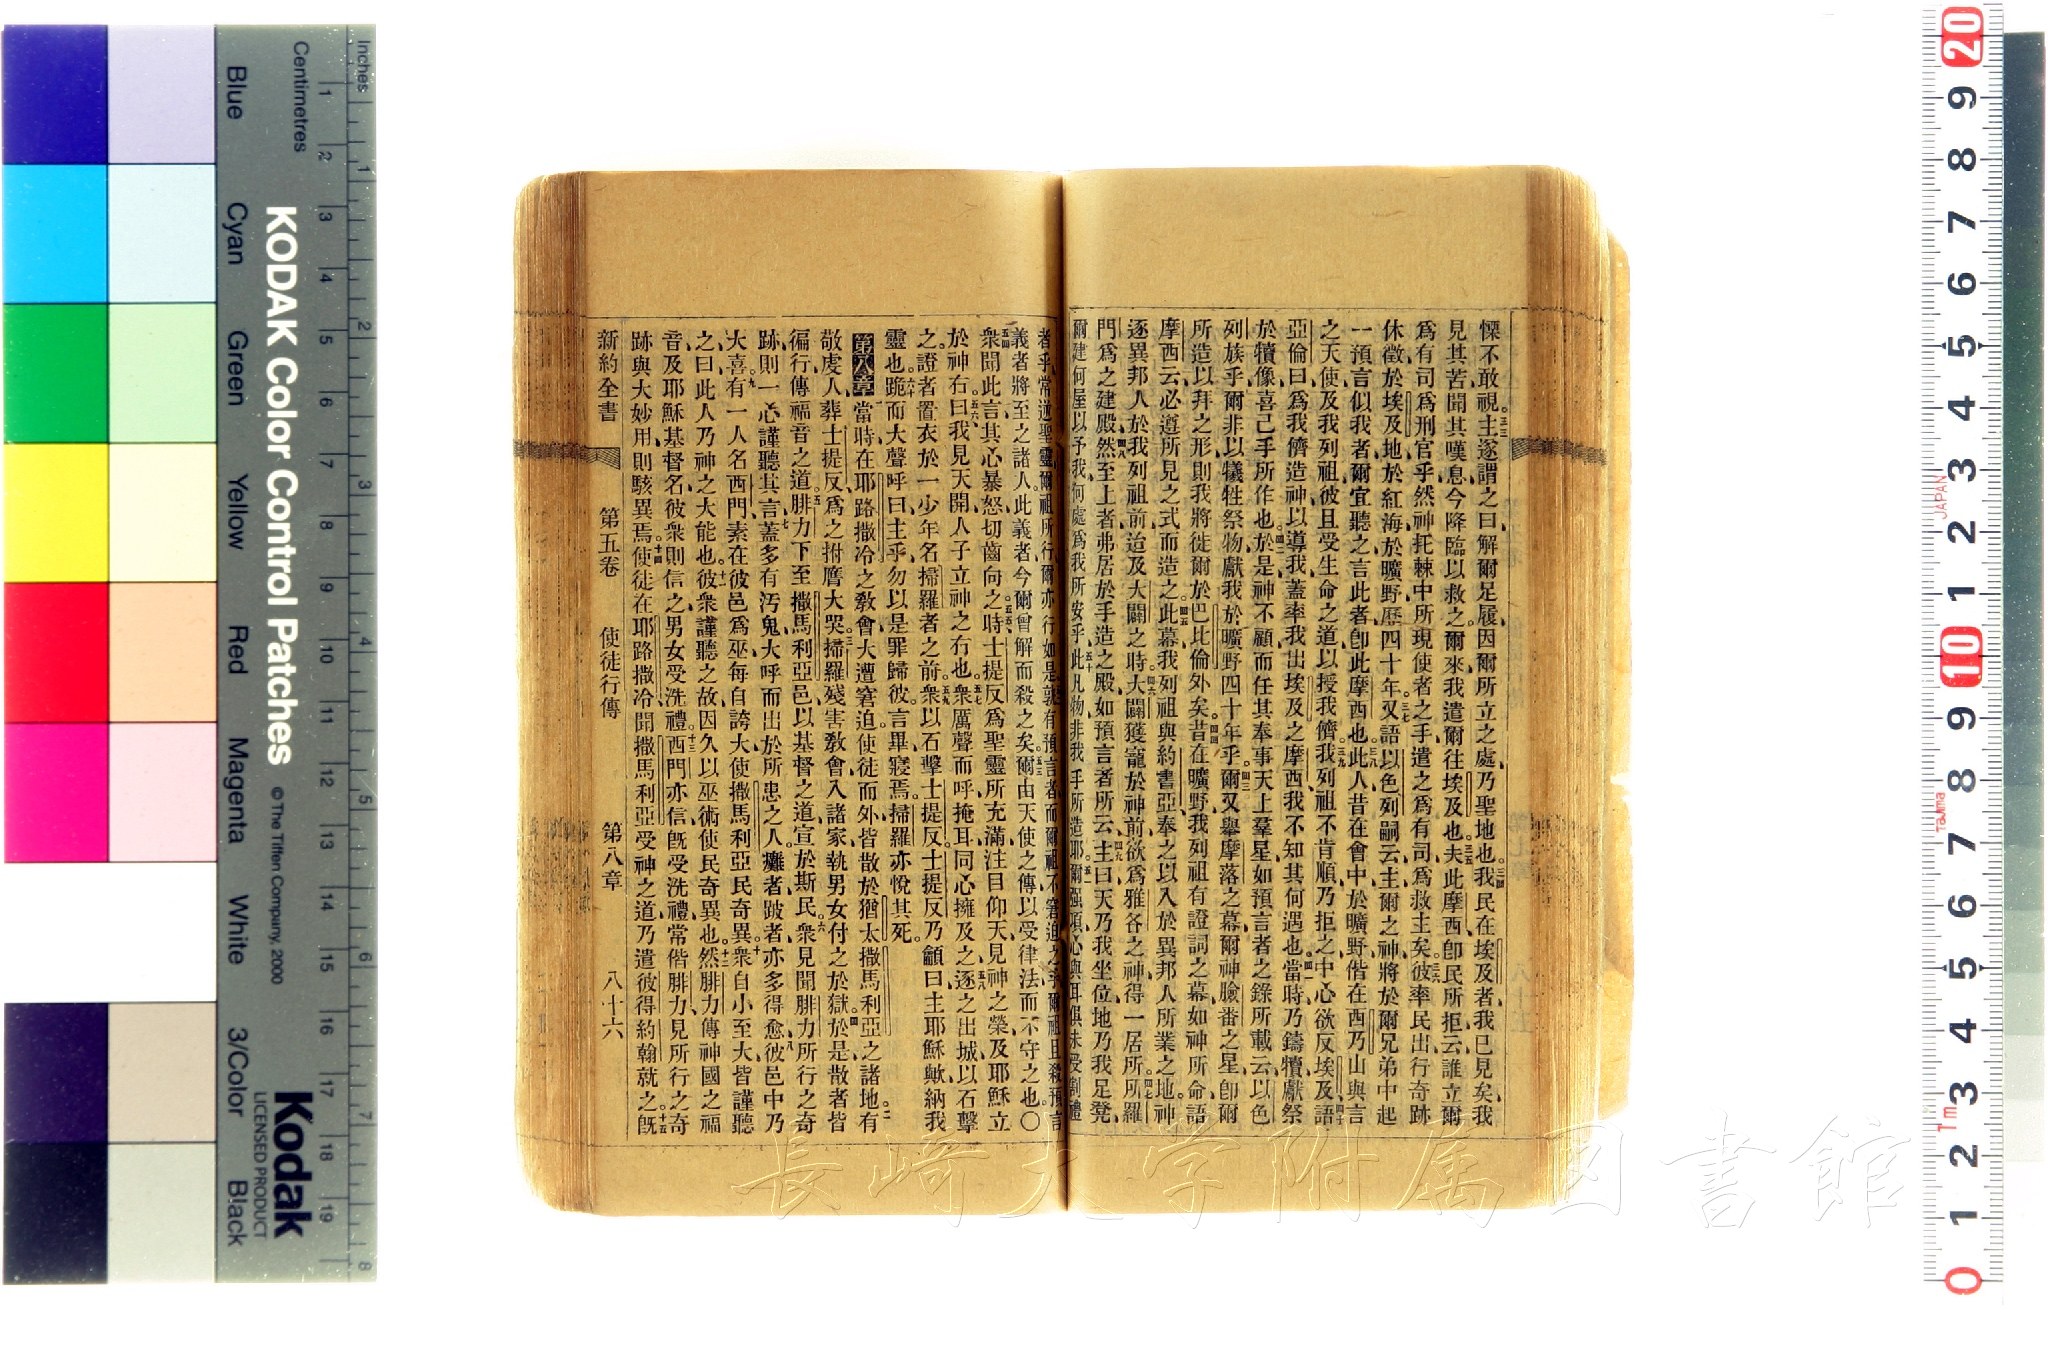 慄不敢視主遂謂之曰解爾足履因爾所立之處乃聖地也我民在埃及者我已見矣我
見其苦聞其嘆息今降臨以救之爾來我遣爾往埃及也夫此摩西卽民所拒云誰立爾
爲有司爲刑官乎然神托棘中所現使者之手遣之爲有司爲救主矣彼率民出行奇跡
休徵於埃及地於紅海於曠野歷四十年又語以色列嗣云主爾之神將於爾兄弟中起
一預言似我者爾宜聽之言此者卽此摩西也此人昔在會中於曠野偕在西乃山與言
之天使及我列祖彼且受生命之道以授我儕我列祖不肯順乃拒之中心欲反埃及語
亞倫曰爲我儕造神以導我蓋率我出埃及之摩西我不知其何遇也當時乃鑄犢獻祭
於犢像喜己手所作也於是神不顧而任其奉事天上羣星如預言者之錄所載云以色
列族乎爾非以犧牲祭物獻我於曠野四十年乎爾又舉摩落之幕爾神臉番之星卽爾
所造以拜之形則我將徙爾於巴比倫外矣昔在曠野我列祖有證詞之幕如神所命語
摩西云必遵所見之式而造之此幕我列祖與約書亞奉之以入於異邦人所業之地神
逐異邦人於我列祖前迨及大闢之時大闢獲寵於神前欲爲雅各之神得一居所所羅
門爲之建殿然至上者弗居於手造之殿如預言者所云主曰天乃我坐位地乃我足凳
爾建何屋以予我何處爲我所安乎此凡物非我手所造耶爾强項心與耳俱未受割禮
者乎常逆聖靈爾祖所行爾亦行如是孰有預言者而爾祖不窘迫之乎爾祖且殺預言
義者將至之諸人此義者今爾曾解而殺之矣爾由天使之傳以受律法而不守之也〇
衆聞此言其心暴怒切齒向之時士提反爲聖靈所充滿注目仰天見神之榮及耶穌立
於神右曰我見天開人子立神之右也衆厲聲而呼掩耳同心擁及之逐之出城以石擊
之證者置衣於一少年名掃羅者之前衆以石擊士提反士提反乃籲曰主耶穌歟納我
靈也跪而大聲呼曰主乎勿以是罪歸彼言畢寢焉掃羅亦悅其死
第八章 當時在耶路撒冷之敎會大遭窘迫使徒而外皆散於猶太撒馬利亞之諸地有
敬虔人葬士提反爲之拊膺大哭掃羅殘害敎會入諸家執男女付之於獄於是散者皆
徧行傳福音之道腓力下至撒馬利亞邑以基督之道宣於斯民衆見聞腓力所行之奇
跡則一心謹聽其言蓋多有污鬼大呼而出於所患之人癱者跛者亦多得愈彼邑中乃
大喜有一人名西門素在彼邑爲巫每自誇大使撒馬利亞民奇異衆自小至大皆謹聽
之曰此人乃神之大能也彼衆謹聽之故因久以巫術使民奇異也然腓力傳神國之福
音及耶穌基督名彼衆則信之男女受洗禮西門亦信旣受洗禮常偕腓力見所行之奇
跡與大妙用則駭異焉使徒在耶路撒冷聞撒馬利亞受神之道乃遣彼得約翰就之旣
新約全書 第五卷 使徒行傳 第八章 八十六
長崎大学附属図書館
KODAK Color Control Patches
© The Tiffen Company, 2000
Kodak
LICENSED PRODUCT
Inches
Centimetres
Blue
Cyan
Green
Yellow
Red
Magenta
White
3/Color
Black
JAPAN
Tajima